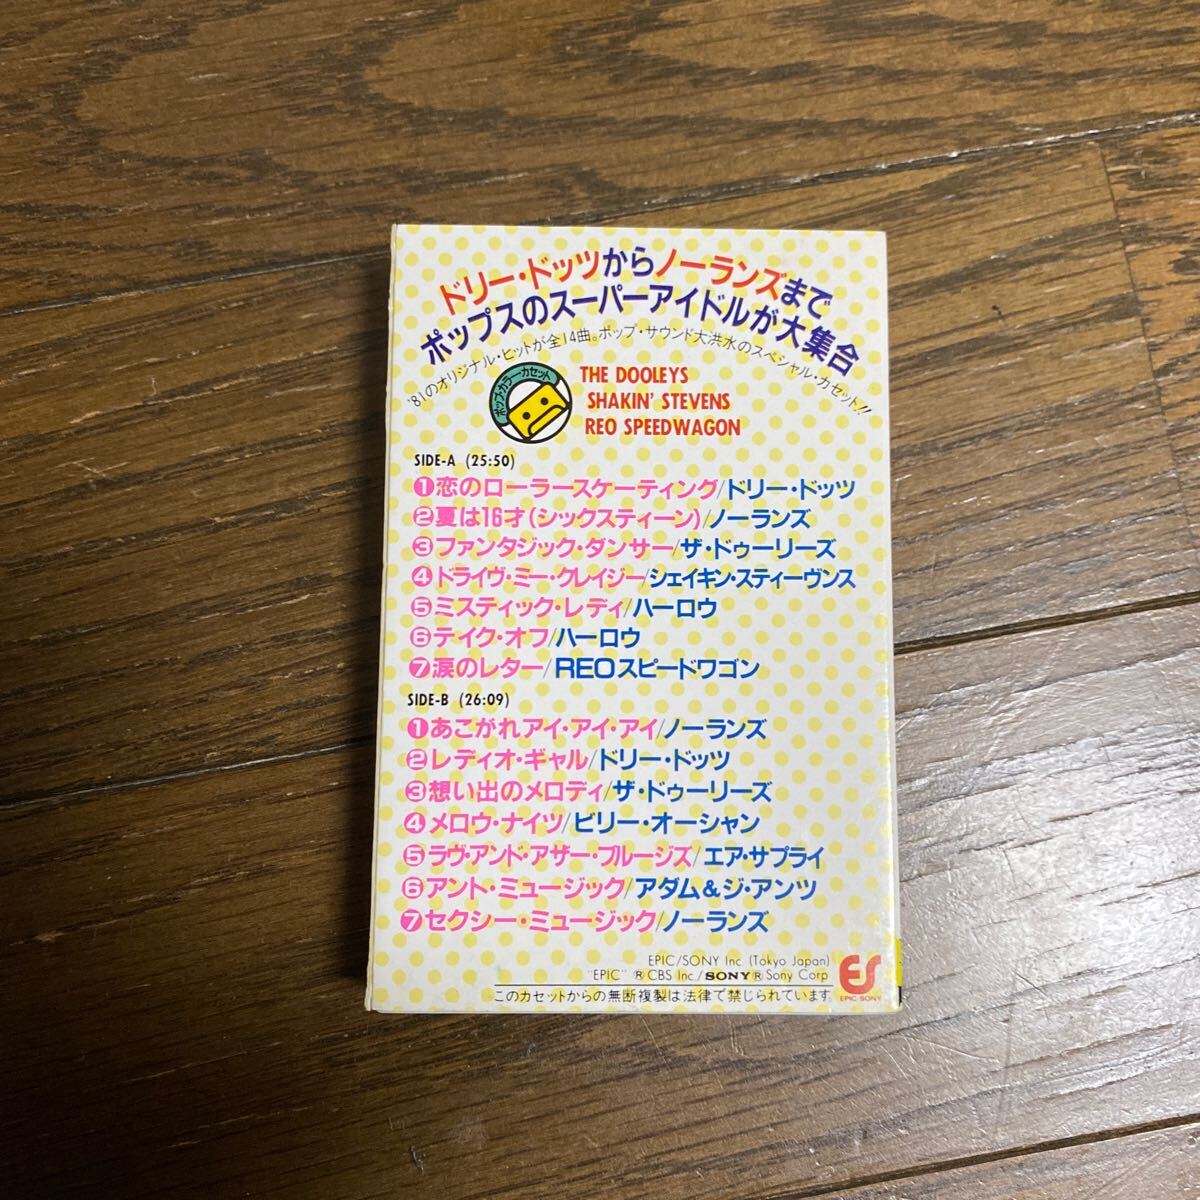 ドリー・ドッツからノーランズまで
ポップスのスーパーアイドルが大集合
'81のオリジナル・ヒットが全14曲。ポップ・サウンド大洪水のスペシャル・カセット!!
ポップ・カラー・カセット
THE DOOLEYS
SHAKIN' STEVENS
REO SPEEDWAGON
SIDE-A (25:50)
❶恋のローラースケーティング/ドリー・ドッツ
❷夏は16才(シックスティーン)/ノーランズ
❸ファンタジック・ダンサー/ザ・ドゥーリーズ
❹ドライヴ・ミー・クレイジー/シェイキン・スティーヴンス
❺ミスティック・レディ/ハーロウ
❻テイク・オフ/ハーロウ
❼涙のレター/REOスピードワゴン
SIDE-B (26:09)
❶あこがれアイ・アイ・アイ/ノーランズ
❷レディオ・ギャル/ドリー・ドッツ
❸想い出のメロディ/ザ・ドゥーリーズ
❹メロウ・ナイツ/ビリー・オーシャン
❺ラヴ・アンド・アザー・ブルージズ/エア・サプライ
❻アント・ミュージック/アダム&ジ・アンツ
❼セクシー・ミュージック/ノーランズ
EPIC/SONY Inc. (Tokyo Japan)
"EPIC" ® CBS Inc./SONY® Sony Corp
このカセットからの無断複製は法律で禁じられています。
ES
EPIC/SONY